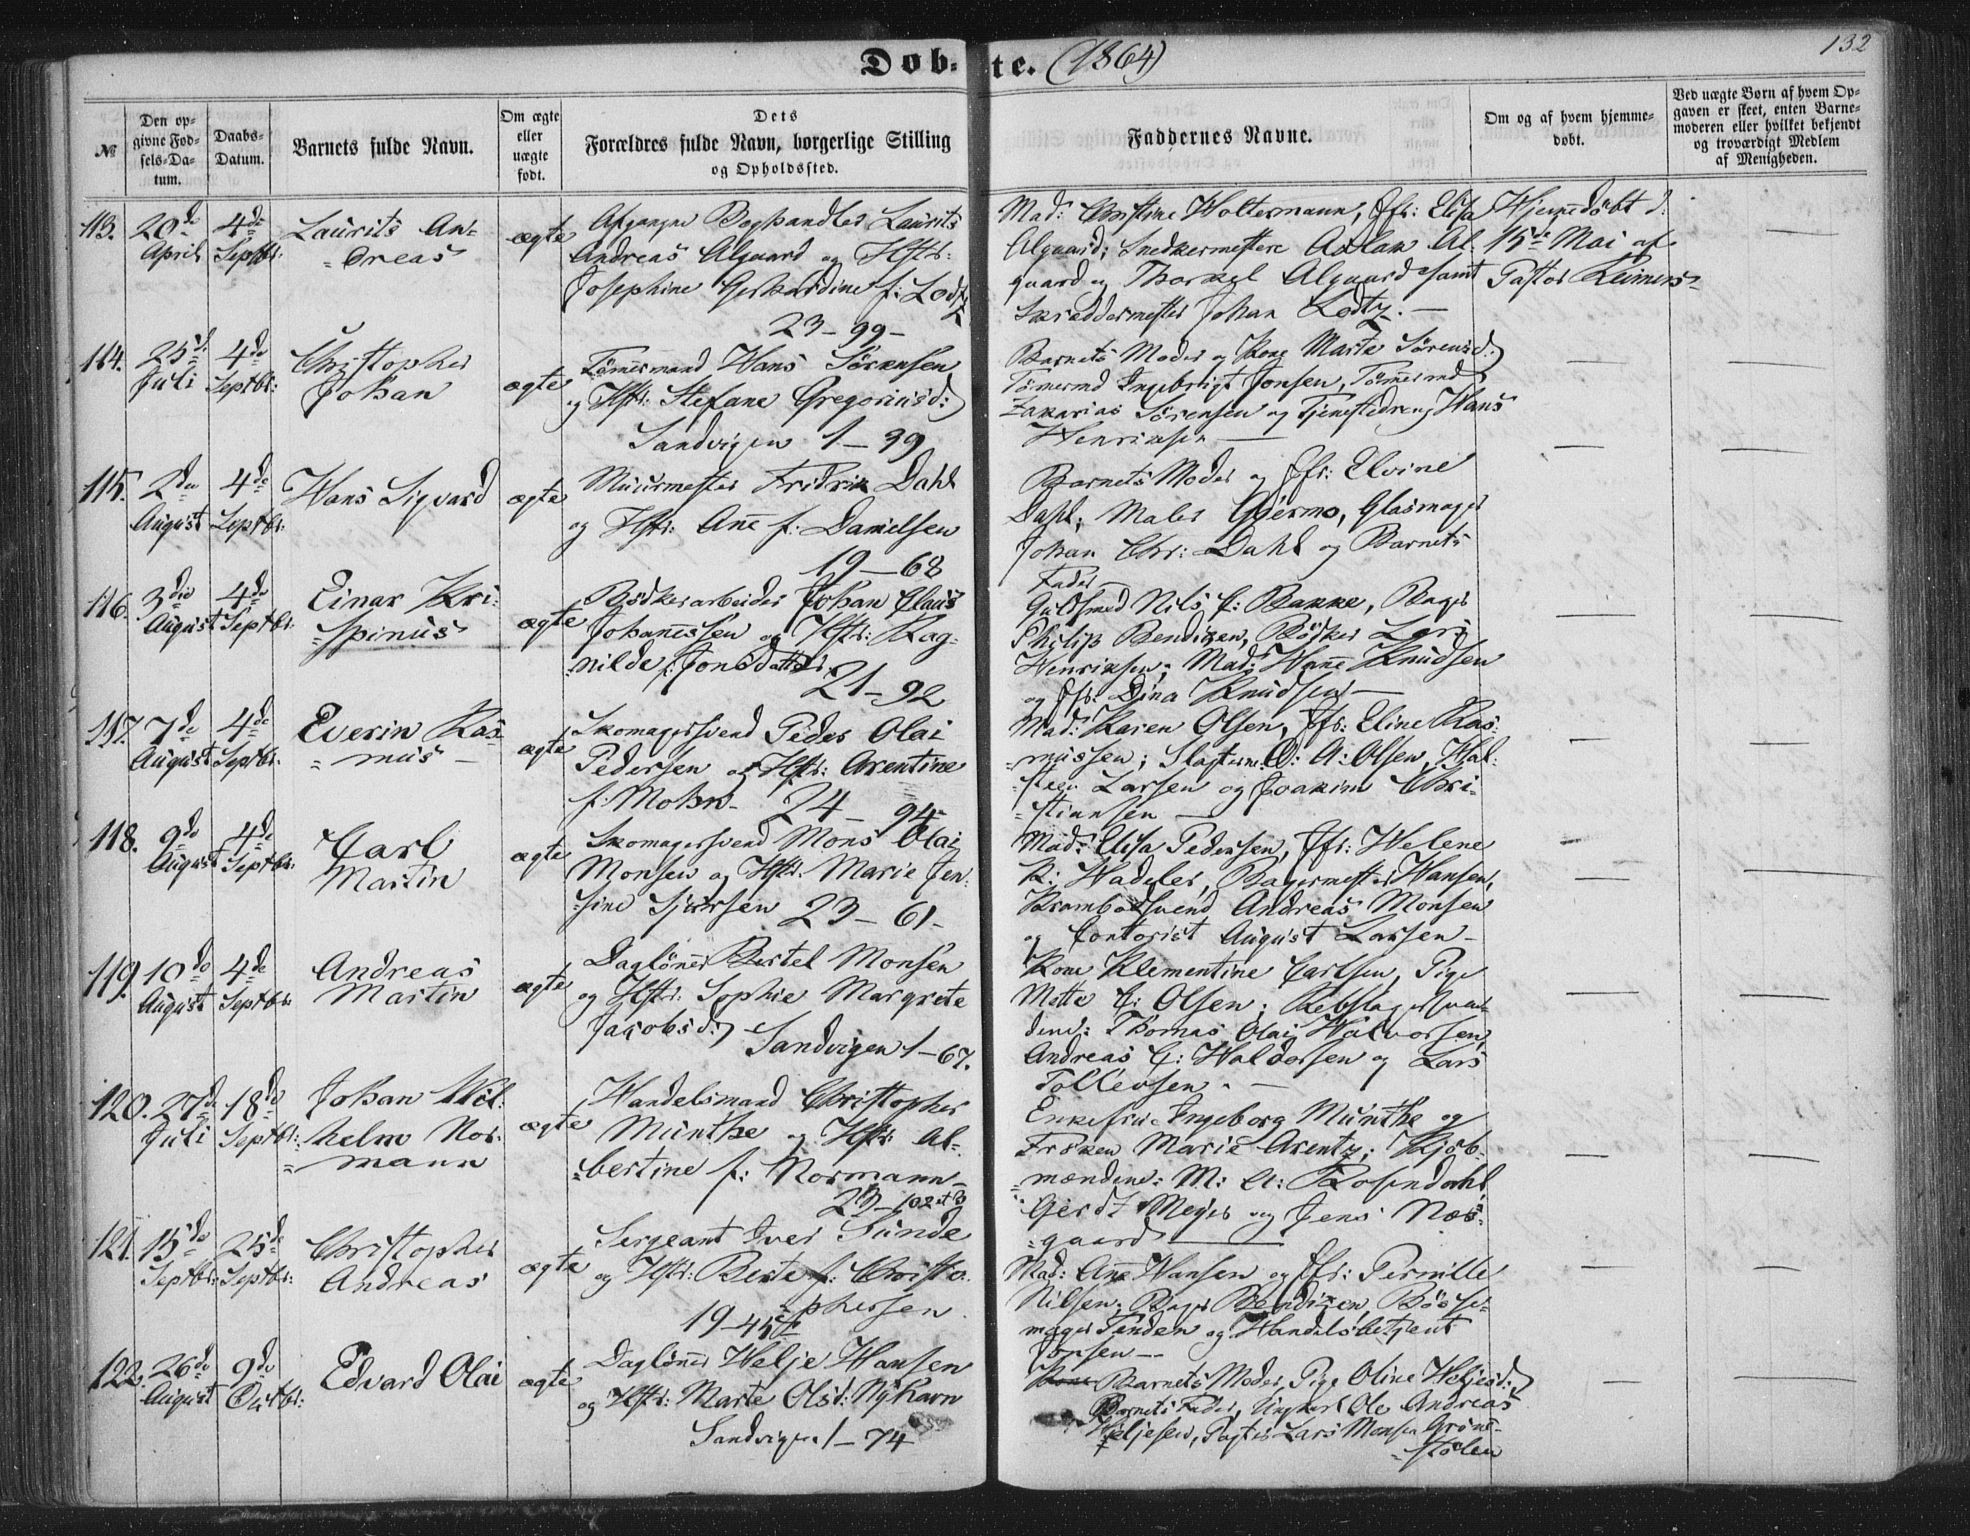 Døb-te. (1864)
132
№
Den op-
givne Fød-
sels-Da-
tum.
Daabs-
Datum.
Barnets fulde Navn.
Om ægte
eller
uægte
født.
Dets
Forældres fulde Navn, borgerlige Stilling
og Opholdssted.
Faddernes Navne.
Om og af hvem hjemme-
døbt.
Ved uægte Børn af hvem Op-
gaven er skeet, enten Barne-
moderen eller hvilket bekjendt
og troværdigt Medlem
af Menigheden.
113.
20de
April
4de
Septbr:
Laurits An-
=dreas
ægte
Afgangne Boghandler Laurits
Andreas Algaard og Hstr:
Josephine Gerhardine f: Lodtz
23-99-
Mad: Christine Woltermann, Jfr: Elisa
Algaard; Snedkermestere Aslak Al-
gaard og Thorkel Algaard samt
Skræddermester Johan Lodtz.-
Hjemmedøbt d:
15de Mai af
Pastor Reimers-
114.
25de
Juli
4de
Septbr:
Christopher
Johan
ægte
Tømmermand Hans Sørensen
og Hstr: Stefane Gregoriusd:
Sandvigen 1-99
Barnets Moder og Kone Marta Sørensd:
Tømermd Ingebrigt Jonsen, Tømermd
Zakarias Sørensen og Tjenestedreng Hans
Henriksen
115.
2den
August
4de
Septbr:
Hans Sigvard
ægte
Muurmester Fridrik Dahl
og Hstr: Ane f. Danielsen
19-68
Barnets Moder og Jfr: Elvine
Dahl; Maler Gjermo, Glasmager
Johan Chr: Dahl og Barnets
Fader
116.
3die
August
4de
Septbr:
Einar Kri-
=spinus
ægte
Bødkerarbeider Johan Claus
Johannessen og Hstr: Rag-
nilde f: Jonsdatter
21-92
Guldsmed Nils C: Bakke, Bager
Philip Bendixen, Bødker Lars
Henriksen; Mad: Hanne Knudsen
og Jfr: Dina Knudsen-
117.
7de
August
4de
Septbr:
Everin Ras-
=mus-
ægte
Skomagersvend Peder Olai
Pedersen og Hstr: Arentine
f: Mohn- 24-94-
Mad: Karen Olsen, Jfr: Eline Ras-
=mussen; Slagterne O: A: Olsen, Hal-
=steen Larsen og Joakim Chri-
=stiansen-
118.
9de
August
4de
Septbr:
Carl
Martin
ægte
Skomagersvend Mons Olai
Monsen og Hstr: Marie Jen-
=sine Sjursen 23-61-
Mad: Elisa Pedersen, Jfr: Helene
K: Hadeler, Bagermester Hansen,
Krambodsvend Andreas Monsen
og Contorist August Larsen-
119.
10de
August
4de
Septbr:
Andreas
Martin
ægte
Dagløner Bertel Monsen
og Hstr: Sophie Margrete
Jacobsd:
Sandvigen 1-67.
Kone Klementine Carlsen, Pige
Mette C: Olsen; Rebslagersven-
dene: Thomas Olai Halvorsen,
Andreas C: Haldorsen og Lars
Tollevsen.-
120.
27de
Juli
18de
Septbr:
Johan Wil-
=helm Nor-
=mann
ægte
Handelsmand Christopher
Münthe og Hstr: Al-
=bertine f: Normann-
23-102 at 3
Enkefrue Ingeborg Münthe og
Frøken Marie Arentz; Kjøb-
=mændene: M: A: Rosendahl
Gerdt Meyer og Jens Næs-
=gaard
121.
15de
Septbr:
25de
Septbr:
Christopher
Andreas
ægte
Sergeant Iver Sunde
og Hstr: Berte f: Christo-
=phersen
19-45
Mad: Ane Hansen og Jfr: Pernille
Nilsen; Bager Bendixen,
mager Tenden og Handelsbetjent
Jonsen-
122.
26de
August
9de
Octbr:
Edvard Olai
ægte
Dagløner Helje Hansen
og Hstr: Marte Olsd: Nyhavn
Sandvigen 1-74
Barnets Moder, Pige Oline Heljesd:
Barnets Fader, Ungkarl Ole Andreas
Heljesen, Lars Monsen Grønne-
=stølen